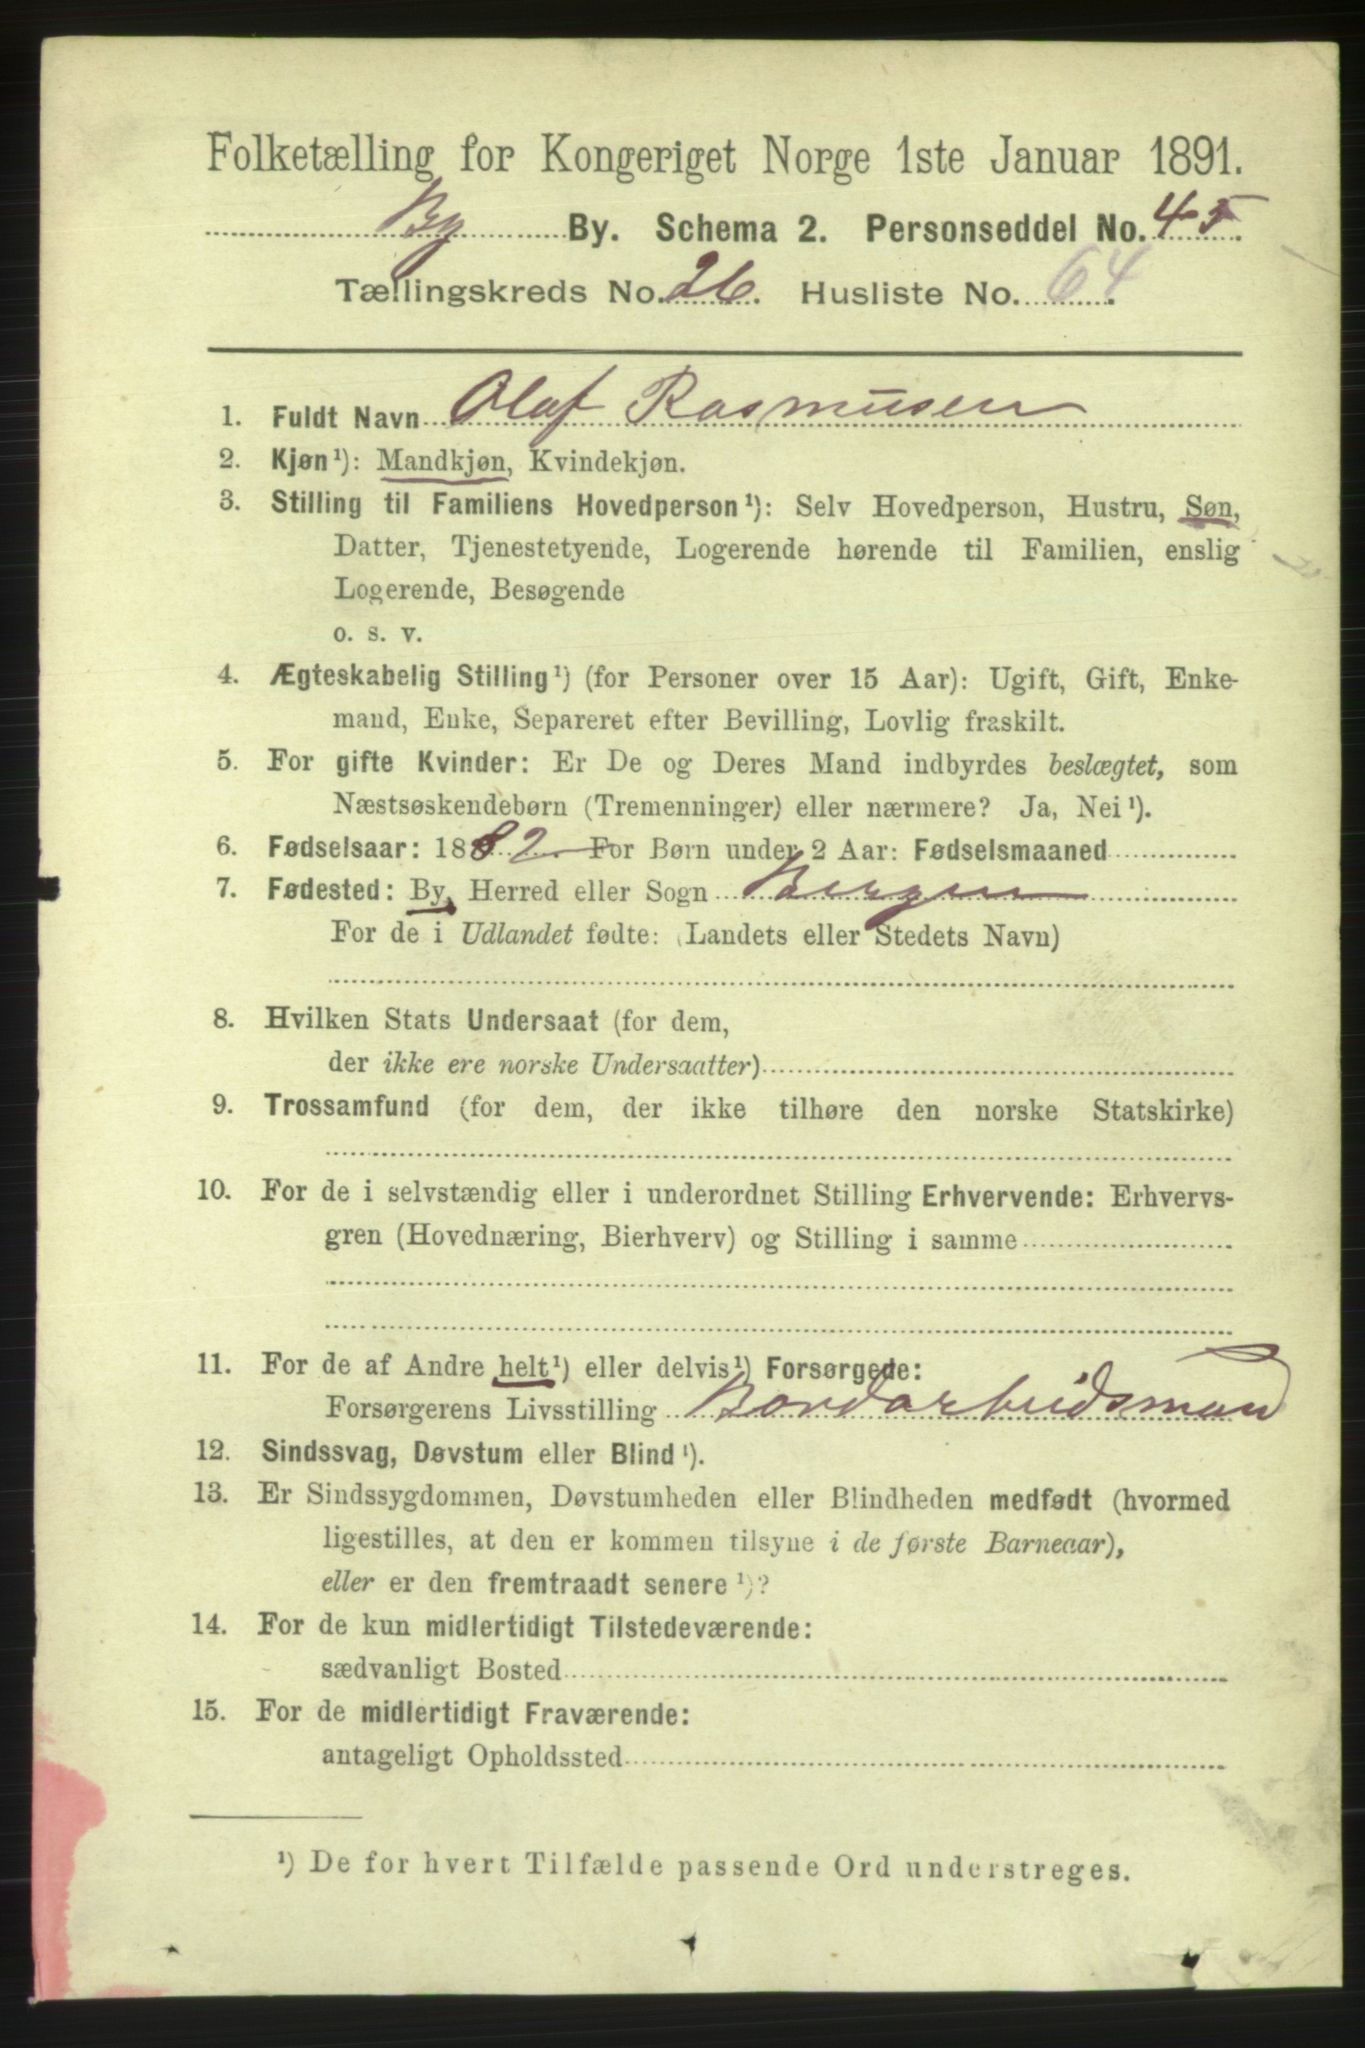 Folketælling for Kongeriget Norge 1ste Januar 1891.
By By. Schema 2. Personseddel No. 45.
Tællingskreds No. 26. Husliste No. 64.
1. Fuldt Navn Olaf Rasmusen
2. Kjøn¹): Mandkjøn, Kvindekjøn.
3. Stilling til Familiens Hovedperson¹): Selv Hovedperson, Hustru, Søn,
Datter, Tjenestetyende, Logerende hørende til Familien, enslig
Logerende, Besøgende
o. s. v.
4. Ægteskabelig Stilling¹) (for Personer over 15 Aar): Ugift, Gift, Enke-
mand, Enke, Separeret efter Bevilling, Lovlig fraskilt.
5. For gifte Kvinder: Er De og Deres Mand indbyrdes beslægtet, som
Næstsøskendebørn (Tremenninger) eller nærmere? Ja, Nei¹).
6. Fødselsaar: 1882. For Børn under 2 Aar: Fødselsmaaned
7. Fødested: By, Herred eller Sogn Bergen
For de i Udlandet fødte: (Landets eller Stedets Navn)
8. Hvilken Stats Undersaat (for dem,
der ikke ere norske Undersaatter)
9. Trossamfund (for dem, der ikke tilhøre den norske Statskirke)
10. For de i selvstændig eller i underordnet Stilling Erhvervende: Erhvervs-
gren (Hovednæring, Bierhverv) og Stilling i samme
11. For de af Andre helt¹) eller delvis¹) Forsørgede:
Forsørgerens Livsstilling Bordarbeidsmand
12. Sindssvag, Døvstum eller Blind¹).
13. Er Sindssygdommen, Døvstumheden eller Blindheden medfødt (hvormed
ligestilles, at den er kommen tilsyne i de første Barneaar),
eller er den fremtraadt senere¹)?
14. For de kun midlertidigt Tilstedeværende:
sædvanligt Bosted
15. For de midlertidigt Fraværende:
antageligt Opholdssted
¹) De for hvert Tilfælde passende Ord understreges.